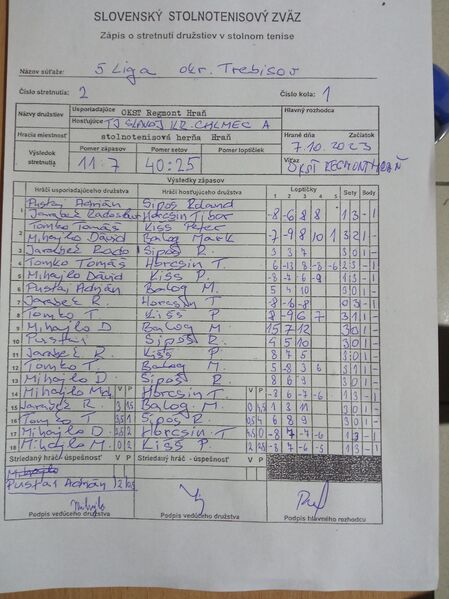 SLOVENSKÝ STOLNOTENISOVÝ ZVÄZ
Zápis o stretnutí družstiev v stolnom tenise
Názov súťaže: 5 Liga okr. Trebišov
Číslo stretnutia: 2 Číslo kola: 1
Názvy družstiev Usporiadajúce OKST Regmont Hraň Hlavný rozhodca
Hosťujúce TJ SLAVOJ KR. CHLMEC A
Hracia miestnosť stolnotenisová herňa Hraň Hrané dňa 7.10.2023 Začiatok
Výsledok stretnutia Pomer zápasov 11:7 Pomer setov 40:25 Pomer loptičiek Víťaz OKST REGMONT HRAŇ
Výsledky zápasov
Hráči usporiadajúceho družstva Hráči hosťujúceho družstva Loptičky Sety Body
1 2 3 4 5
1 Pustai Adrián Sipos Roland
Jarabek Radoslav Horcsin Tibor -8 -6 8 8 1 3 - 1
2 Tomko Tomáš Kiss Peter
Mihajko Dávid Balog Mark -7 -9 8 10 1 3 2 1 -
3 Jarabek Rado Sipos R. 3 3 7 3 0 1 -
4 Tomko Tomáš Horcsin T. 6 -13 8 -8 -6 2 3 - 1
5 Mihajko Dávid Kiss P. -8 -7 6 -9 1 3 - 1
6 Pustai Adrián Balog M. 5 4 10 3 0 1 -
7 Jarabek R. Horcsin T. -8 -6 -8 0 3 - 1
8 Tomko T. Kiss P. 8 -9 6 7 3 1 1 -
9 Mihajko D. Balog M. 15 7 12 3 0 1 -
10 Pustai Sipos R. 4 5 10 3 0 1 -
11 Jarabek R. Kiss P. 8 7 5 3 0 1 -
12 Tomko T. Balog M. 5 -8 3 6 3 1 1 -
13 Mihajko D. Sipos R. 8 6 9 3 0 1 -
14 Mihajko V P Horcsin T. V P -8 6 -7 -6 1 3 - 1
15 Jarabek R. Balog M. 1 3 11 3 0 1 -
16 Tomko T. Sipos R. 6 8 9 3 0 1 -
17 Mihajko D. Horcsin T. -8 7 -7 -6 1 3 - 1
18 Mihajko M. Kiss P. -8 7 -6 -5 1 3 - 1
Striedaný hráč - úspešnosť V P Striedaný hráč - úspešnosť V P
Pustai Adrián 2 0,5
Podpis vedúceho družstva Podpis vedúceho družstva Podpis hlavného rozhodcu